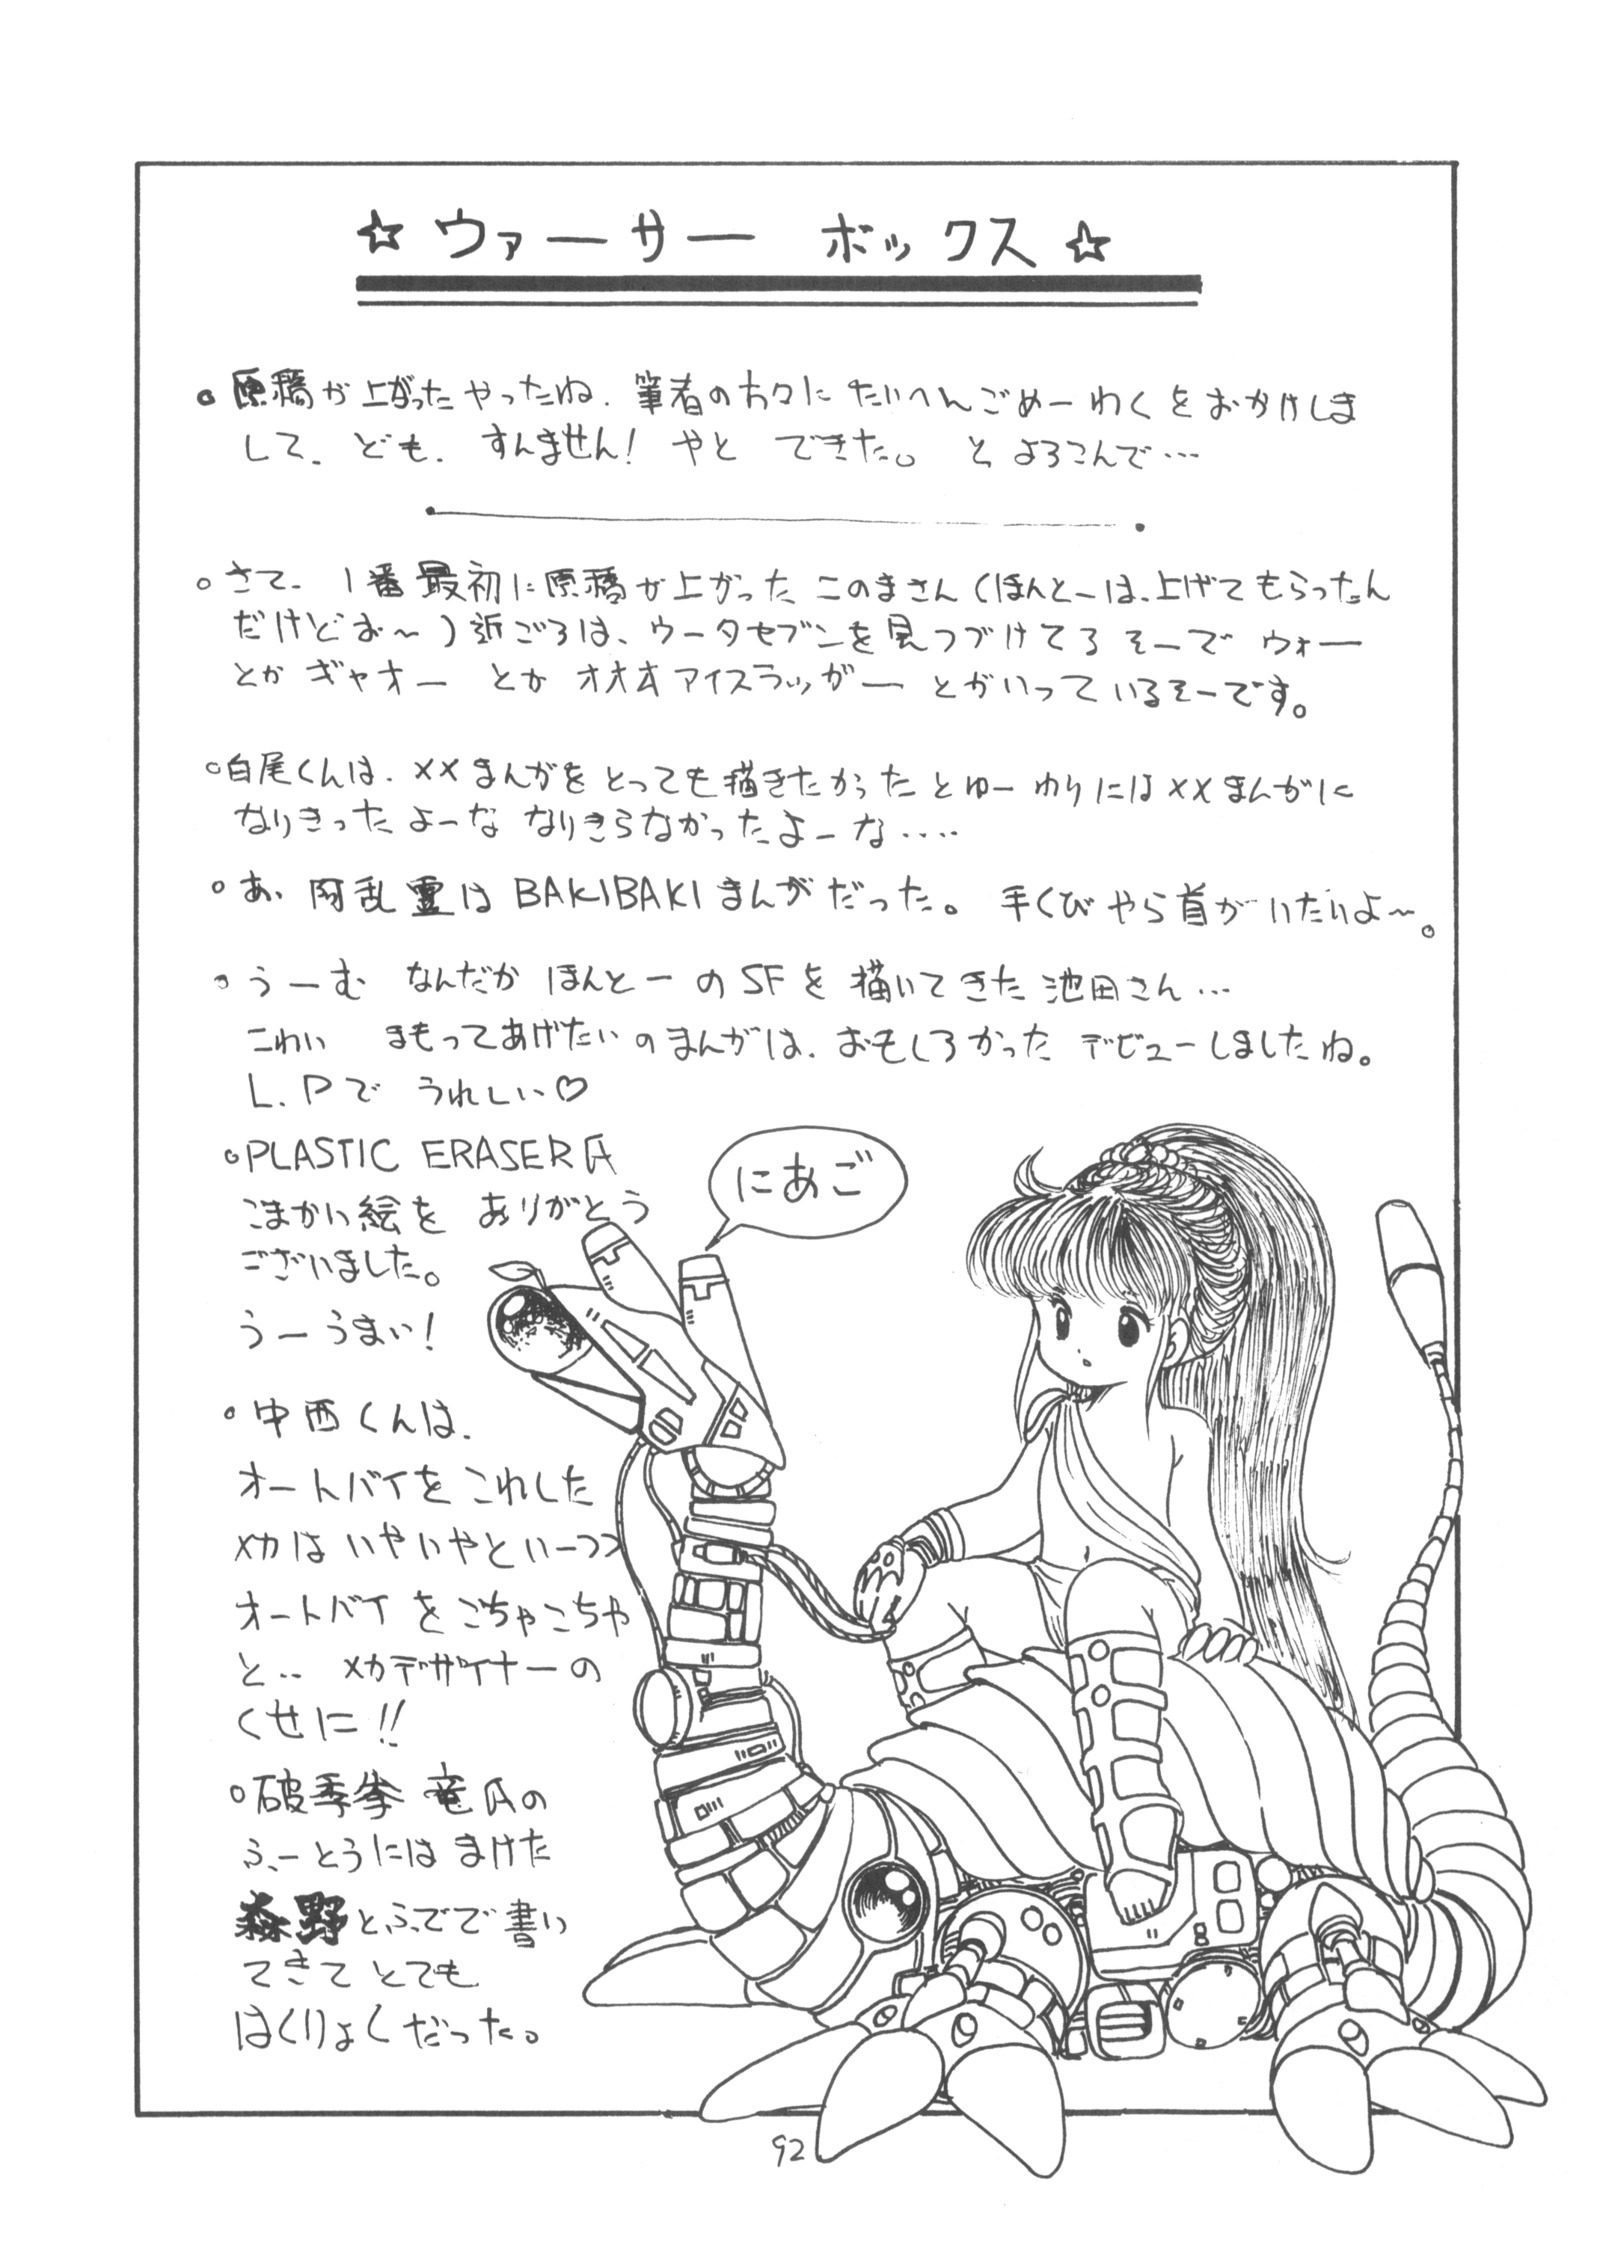 ☆ ウァーサー ボックス ☆
。原稿が上がった やったね. 筆者の方々に たいへんごめーわくをおかけしま
して. ども. すんません! やと できた。 と よろこんで…
。さて. 1番最初に原稿が上がった このまさん (ほんとーは、上げてもらったん
だけどお〜) 近ごろは、ウータセブンを見つづけてる そーで ウォー
とか ギャオー とか オオオアイスラッガー とかいっているそーです。
。白尾くんは. ××まんがを とっても描きたかった とゆーわりには××まんがに
なりきったよーな なりきらなかったよーな‥‥
。あ、阿乱霊は BAKIBAKIまんがだった。 手くびやら首がいたいよ〜。
。うーむ なんだか ほんとーのSFを 描いてきた 池田さん…
こわい まもってあげたい のまんがは. おもしろかった デビューしましたね。
L.Pで うれしい♡
。PLASTIC ERASER氏
こまかい絵を ありがとう
ございました。
うーうまい!
にあご
。中西くんは.
オートバイを これした
メカは いやいやといーつつ
オートバイを ごちゃこちゃ
と‥ メカデザイナーの
くせに!!
。破季拳 竜氏の
ふーとうには まけた
森野とふでで書い
てきて とても
はくりょくだった。
92